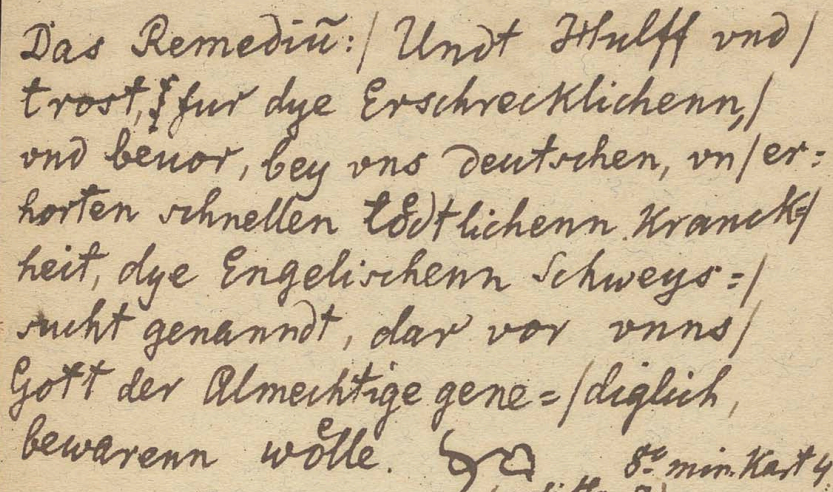 Das Remediū:/ Undt Hulff vnd/
trost, fur dye Erschrecklichenn,/
vnd beuor, bey vns deutschen, vn/er:
horten schnellen toͤdtlichenn Kranck=/
heit, dye Engelischenn Schweys=/
sucht genanndt, dar vor vnns/
Gott der Almechtige gene=/diglich,
bewarenn woͤlle.
8° min. Kart 4